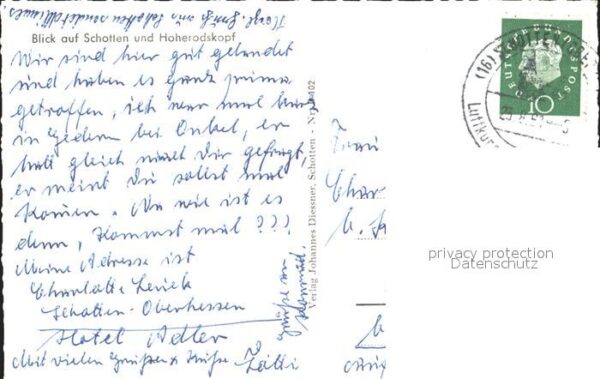 Herzl. Grüße aus Schotten sendet
Blick auf Schotten und Hoherodskopf
Wir sind hier gut gelandet
sind haben es ganz prima
getroffen, ich war mal kurz
in Gedern bei Onkel, er
hatt gleich nach Dir gefragt,
er meint Du sollst mal
kommen. Na wie ist es
denn, kommst mal ???
Meine Adresse ist
Charlotte
Schotten-Oberhessen
Hotel Adler
Mit vielen Grüßen & Küße
Verlag Johannes Diessner, Schotten - Nr.
Frau
Char
b.
DEUTSCHE BUNDESPOST
10
(16) SCHOTTEN
Luftkur
privacy protection
Datenschutz